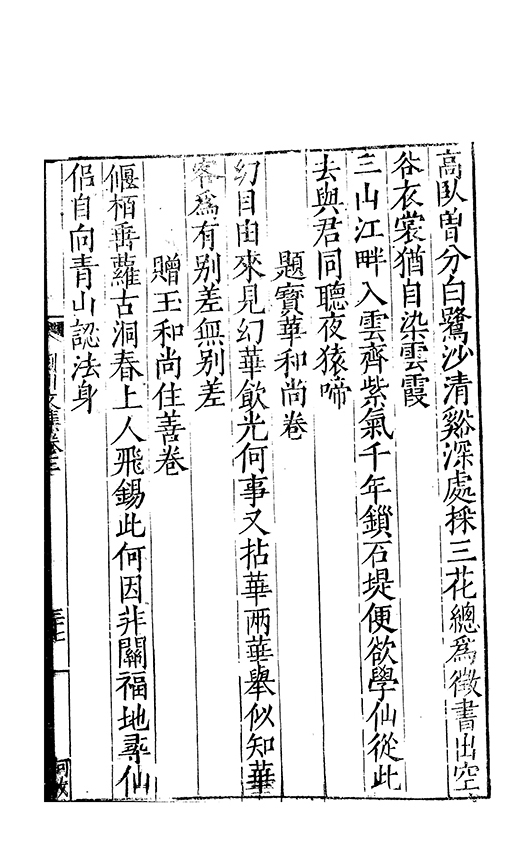 高臥曽分白鷺沙清谿深處採三花總爲徵書出空
谷衣裳猶自染雲霞
三山江畔入雲齊紫氣千年鎖石堤便欲學仙從此
去與君同聽夜猿啼
題寶華和尚卷
幻自由來見幻華飲光何事又拈華兩華舉似知華
客爲有别差無别差
贈玉和尚住善卷
偃栢垂蘿古洞春上人飛錫此何因非關福地尋仙
侶自向青山認法身
川文集卷三
三十七